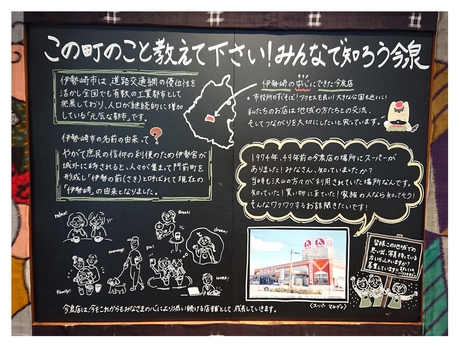 この町のこと教えて下さい!みんなで知ろう今泉
伊勢崎市は、道路交通網の優位性を
活かし全国でも有数の工業都市として
発展しており、人口が継続的に増加
している「元気な都市」です。
伊勢崎市の名前の由来って?
やがて庶民の信仰の利便のため伊勢宮が
城外に移されると、人々が集まって門前町を
形成し「伊勢の前(さき)」と呼ばれて現在の
「伊勢崎」の由来となりました。
伊勢崎のおへそにできた今泉店
市役所がすぐそば!アクセスも良い!大きな公園も近くに!
私たちのお店は地域の方たちとの交流、
そしてつながりを大切にしたいと思っています。
1974年、49年前の今泉店の場所にスーパーが
ありました!みなさん、知っていましたか?
当時も沢山の方々が利用されていた場所なんです。
知っていた!買い物に来ていた!家族の人なら知ってそう!
そんなワクワクするお話聞きたいです!
relax!
dream!
Family!
今泉店は、今もこれからもみなさまの心により添い続ける店舗として成長していきます。